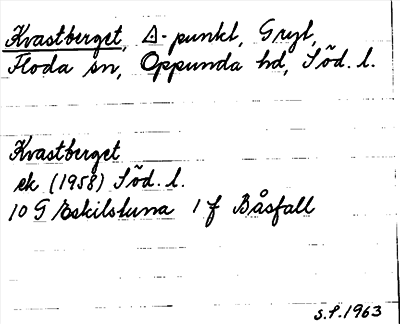 Kvastberget, △-punkt, Gryt,
Floda sn, Oppunda hd, Söd. l.
Kvastberget
ek (1958) Söd. l.
10 G Eskilstuna 1 f Båsfall
S.P. 1963